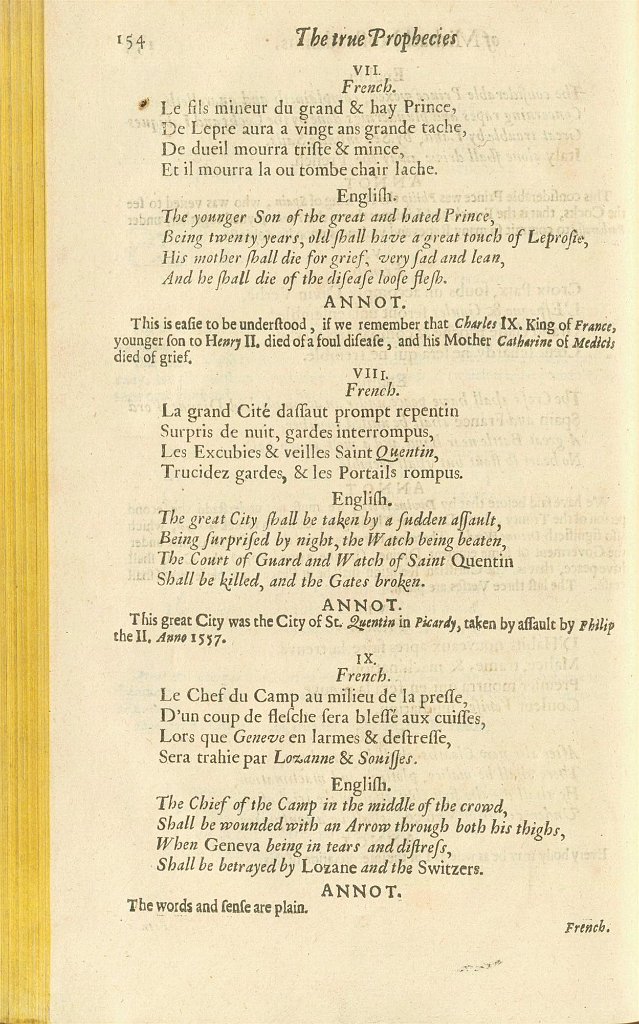 154 The true Prophecies
VII.
French.
Le fils mineur du grand & hay Prince,
De Lepre aura a vingt ans grande tache,
De dueil mourra triſte & mince,
Et il mourra la ou tombe chair lache.
Engliſh.
The younger Son of the great and hated Prince,
Being twenty years, old ſhall have a great touch of Leproſie,
His mother ſhall die for grief, very ſad and lean,
And he ſhall die of the diſeaſe looſe fleſh.
ANNOT.
This is eaſie to be underſtood, if we remember that Charles IX. King of France,
younger ſon to Henry II. died of a foul diſeaſe, and his Mother Catharine of Medicis
died of grief.
VIII.
French.
La grand Cité daſſaut prompt repentin
Surpris de nuit, gardes interrompus,
Les Excubies & veilles Saint Quentin,
Trucidez gardes, & les Portails rompus.
Engliſh.
The great City ſhall be taken by a ſudden aſſault,
Being ſurpriſed by night, the Watch being beaten,
The Court of Guard and Watch of Saint Quentin
Shall be killed, and the Gates broken.
ANNOT.
This great City was the City of St. Quentin in Picardy, taken by aſſault by Philip
the II. Anno 1557.
IX.
French.
Le Chef du Camp au milieu de la preſſe,
D'un coup de fleſche ſera bleſſé aux cuiſſes,
Lors que Geneve en larmes & deſtreſſe,
Sera trahie par Lozanne & Souiſſes.
Engliſh.
The Chief of the Camp in the middle of the crowd,
Shall be wounded with an Arrow through both his thighs,
When Geneva being in tears and diſtreſs,
Shall be betrayed by Lozane and the Switzers.
ANNOT.
The words and ſenſe are plain.
French.